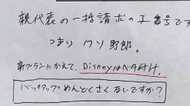 親代表の一括請求の子番号です
つまり クソ野郎。
新プランにかえて、Disneyはべた付け。
バックアップめんどくさくないですか?